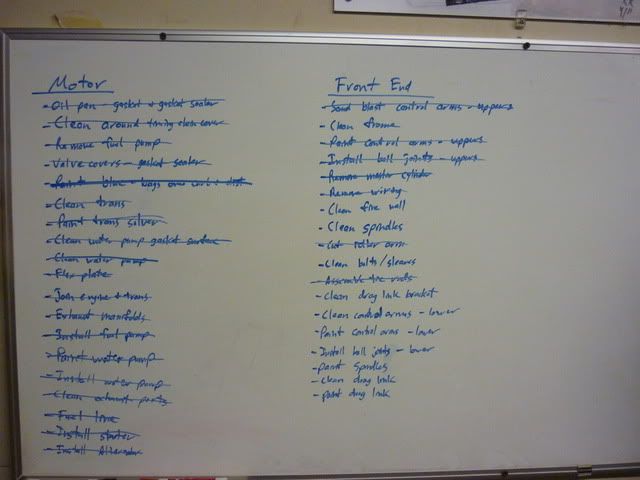 Motor
- Oil pan - gasket & gasket sealer
- Clean around timing chain cover
- Remove fuel pump
- Valve covers - gasket sealer
- Paint blue - bags over
- Clean trans
- Paint trans silver
- Clean water pump gasket surface
- Clean water pump
- Flex plate
- Join engine & trans
- Exhaust manifolds
- Install fuel pump
- Paint water pump
- Install water pump
- Clean exhaust parts
- Fuel line
- Install starter
- Install Alternator
Front End
- Sand blast control arms - uppers
- Clean frame
- Paint control arms - uppers
- Install ball joints - uppers
- Remove master cylinder
- Remove wiring
- Clean fire wall
- Clean spindles
- Cut roller arm
- Clean bolts/sleaves
- Assemble tie rods
- Clean drag link bracket
- Clean control arms - lower
- Paint control arms - lower
- Install ball joints - lower
- paint spindles
- clean drag link
- paint drag link